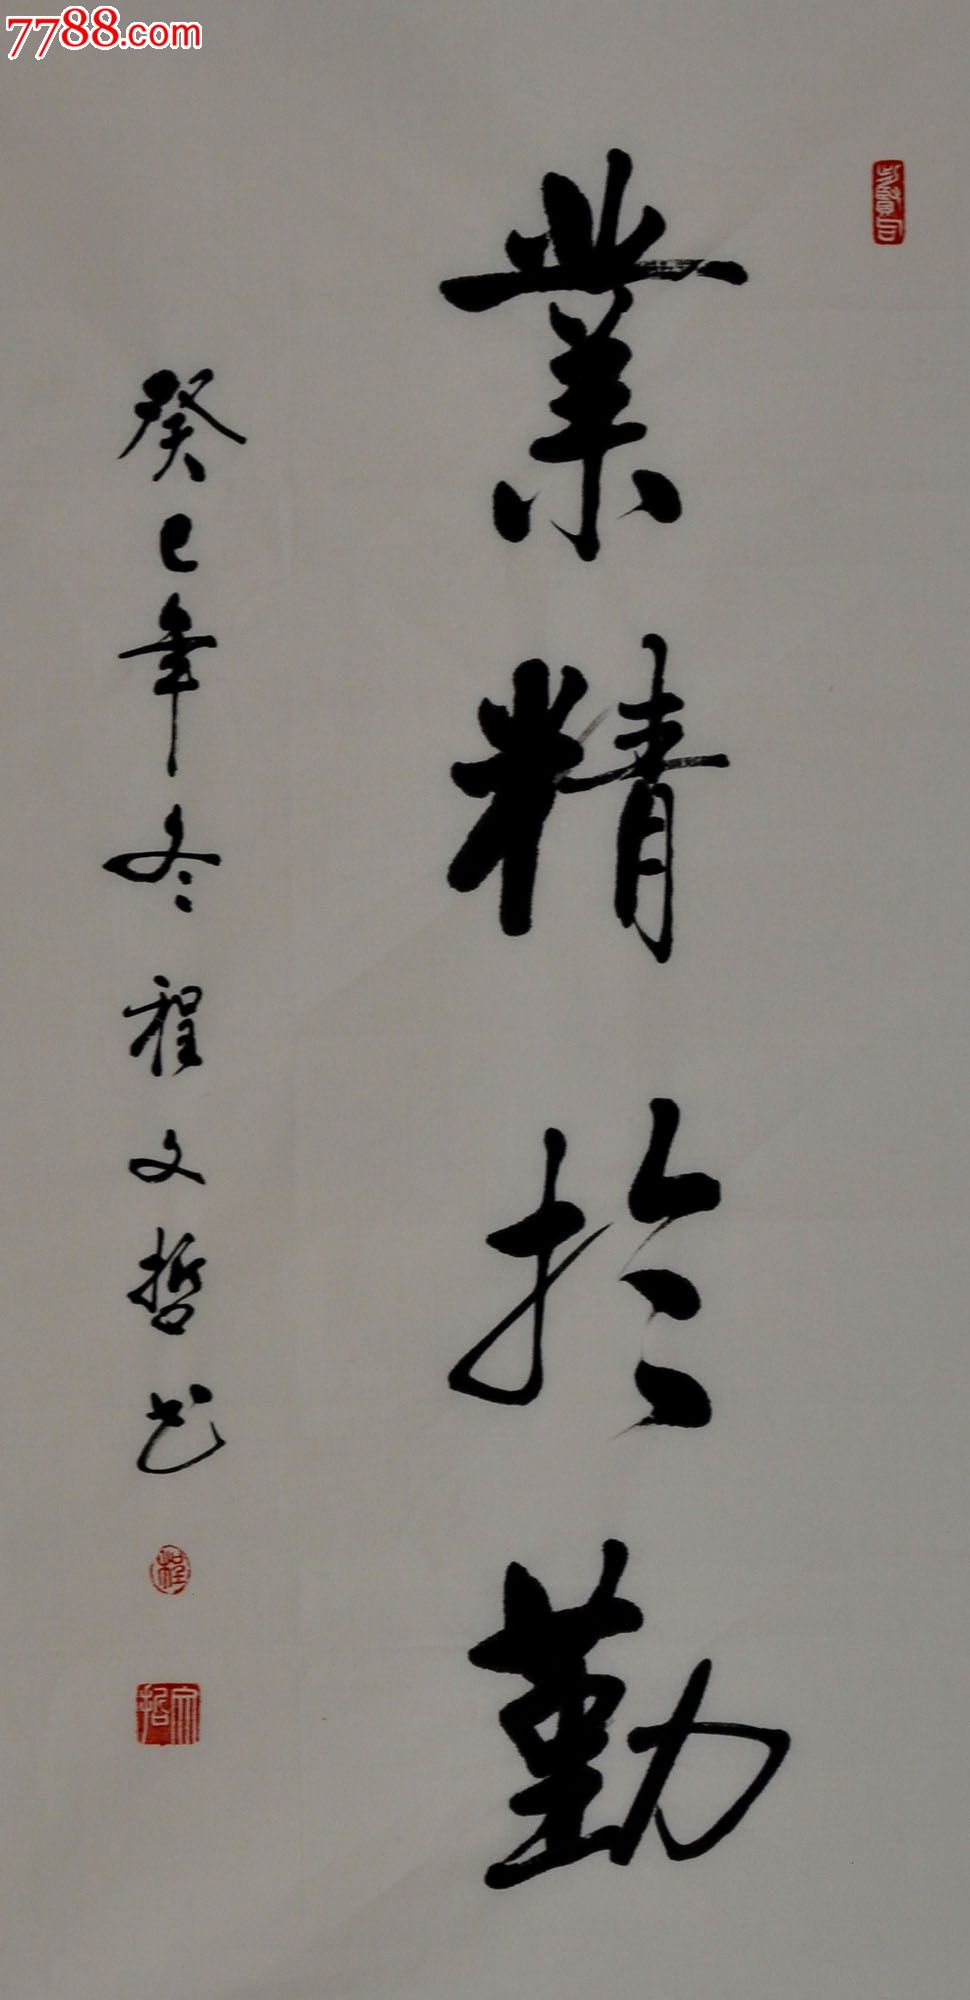 7788.com
業精於勤
癸巳年冬程文哲书
程
文哲